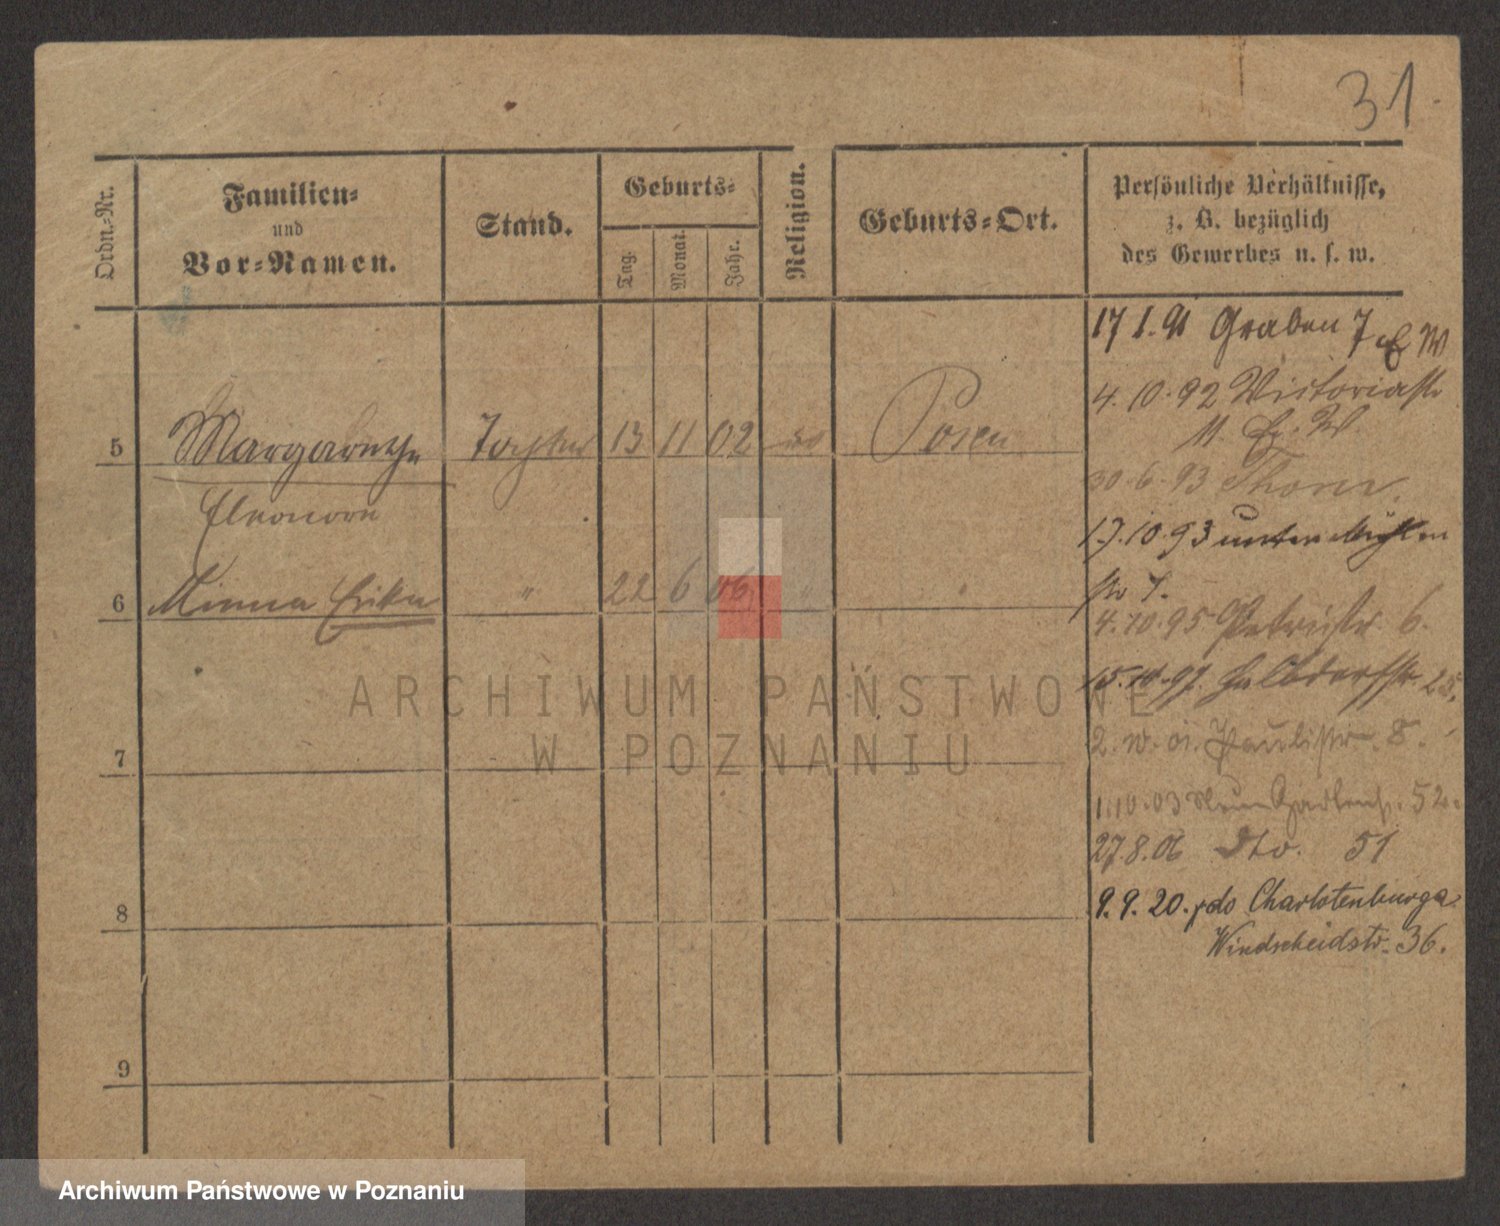 31.
Ordn.-Nr.
Familien-
und
Vor-Namen.
Stand.
Geburts-
Tag.
Monat.
Jahr.
Religion.
Geburts-Ort.
Persönliche Verhältnisse,
z. B. bezüglich
des Gewerbes u. s. w.
17 1. 91 Graben 7 E W
4. 10. 92 Victoriastr
11. W.
5 Margarethe Tochter 13 11 02 Posen
30. 6. 93 Thorn.
Eleonore
17. 10. 93 unter Mühlen
str 7.
6 Minna Erika " 22 6 06 " "
4. 10. 95 Petristr 6.
15. 10. 97. Halbdorfstr 25.
2. 10. 01. Paulistr. 8.
7
1. 10. 03 Neue Gartenstr. 52.
27. 8. 06 dto. 51
9. 9. 20. Charlotenburg
8
Windscheidstr. 36.
9
ARCHIWUM PAŃSTWOWE
W POZNANIU
Archiwum Państwowe w Poznaniu